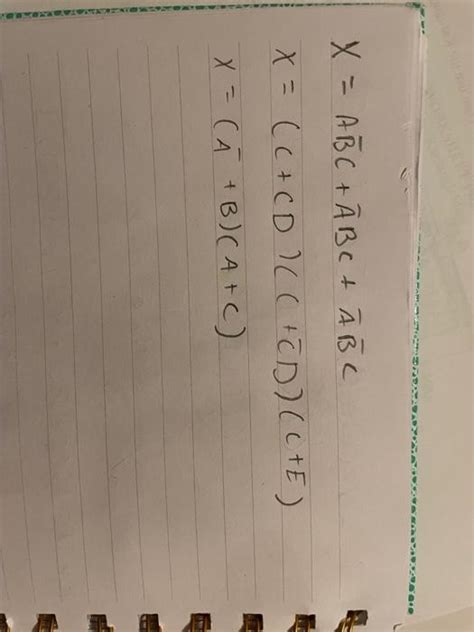 X = AB̄C + ĀBC + ĀB̄C
X = (C + CD)(C + C̄D)(C + E)
X = (Ā + B)(A + C)